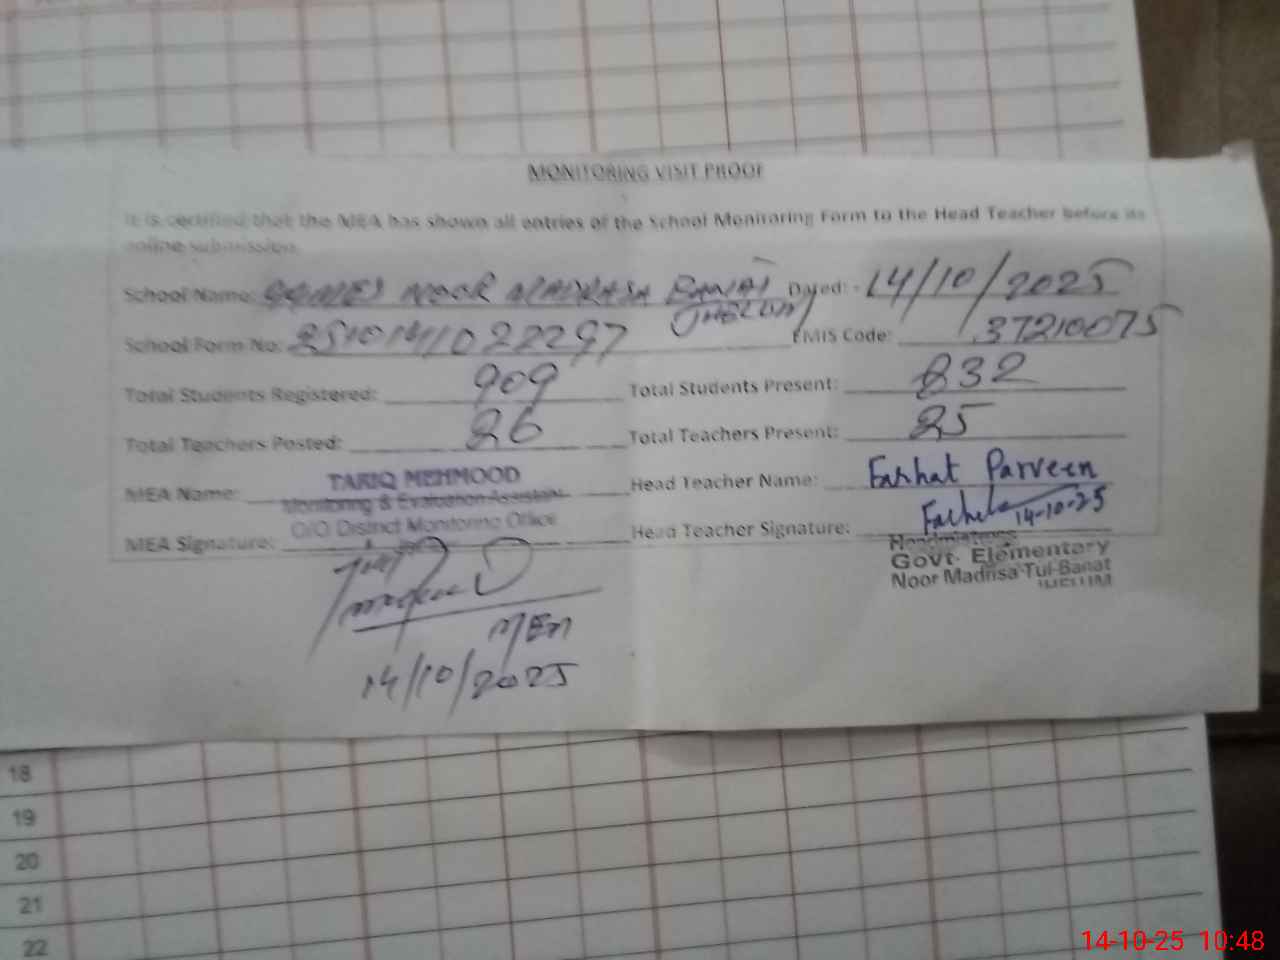 MONITORING VISIT PROOF
It is certified that the MEA has shown all entries of the School Monitoring Form to the Head Teacher before its
online submission.
School Name: NOOR MADRASA BANAT Dated: - 14/10/2025
JHELUM
School Form No: 25101411022297 EMIS Code: 37210075
Total Students Registered: 909 Total Students Present: 832
Total Teachers Posted: 26 Total Teachers Present: 25
MEA Name: TARIQ MEHMOOD Head Teacher Name: Farhat Parveen
Monitoring & Evaluation Assistant
O/O District Monitoring Office
MEA Signature: Head Teacher Signature: 14-10-25
Headmistress
Govt. Elementary
Noor Madrisa Tul-Banat
JHELUM
MEA
14/10/2025
18
19
20
21
22
14-10-25 10:48